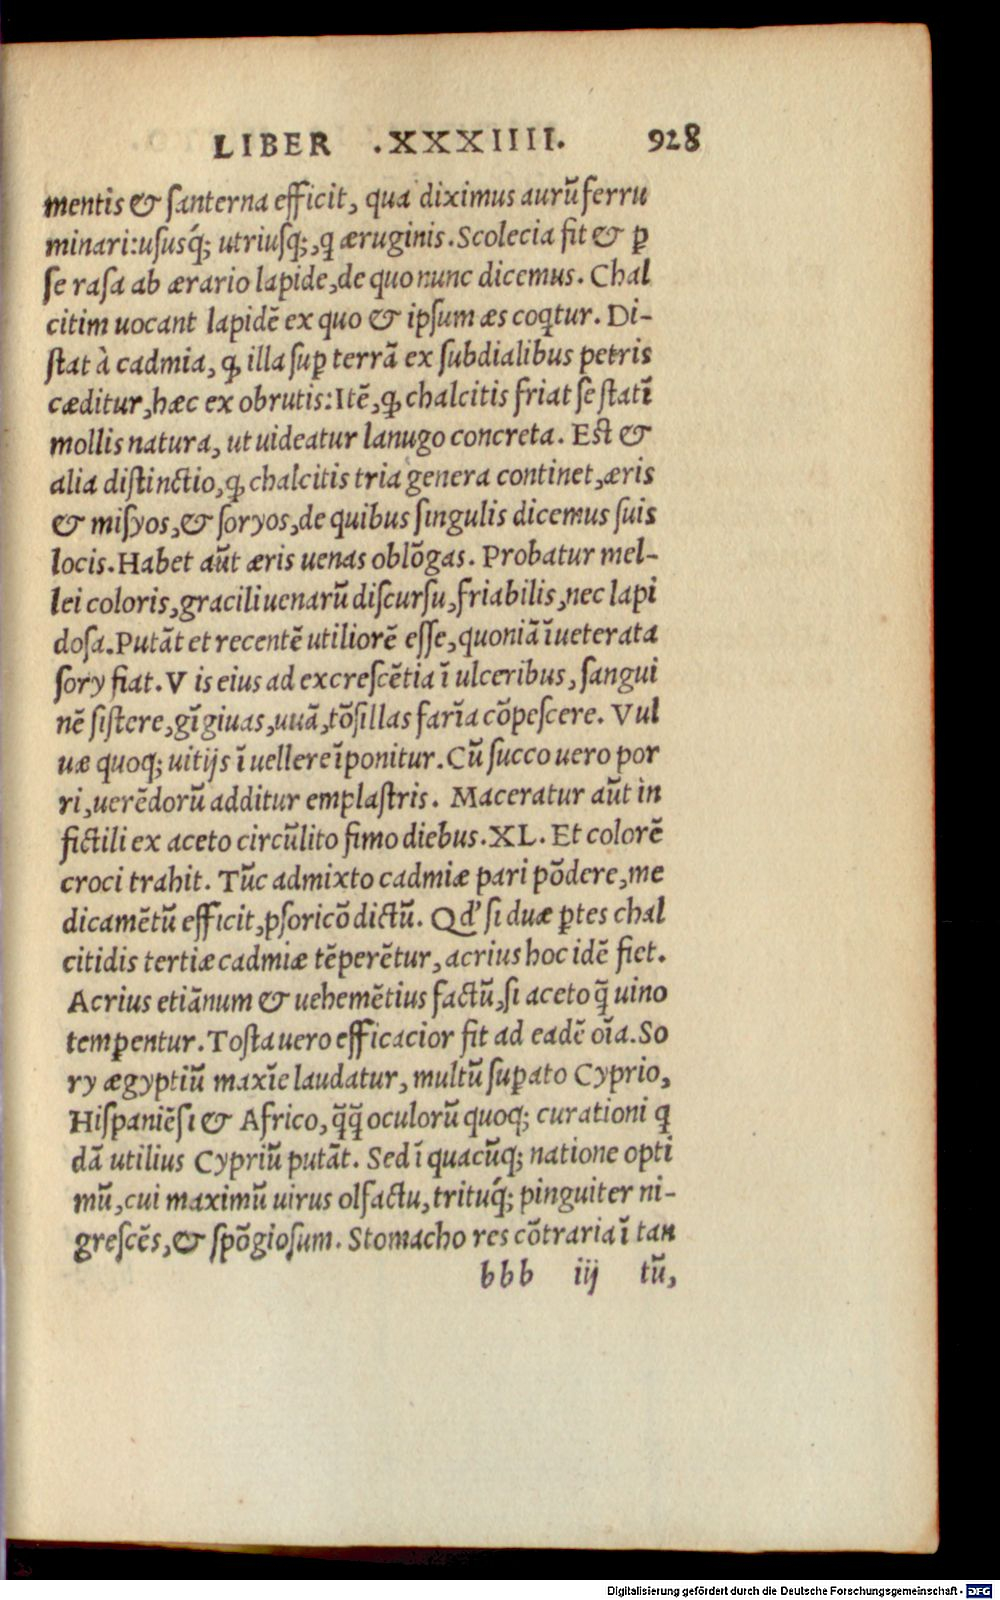 LIBER .XXXIIII. 928
mentis & ſanterna efficit, qua diximus aurũ ferru
minari: uſusq́; utriuſq;, q̃ æruginis. Scolecia fit & ꝑ
ſe raſa ab ærario lapide, de quo nunc dicemus. Chal
citim uocant lapidẽ ex quo & ipſum æs coqtur. Di-
ſtat à cadmia, ꝙ illa ſuꝑ terrã ex ſubdialibus petris
cæditur, hæc ex obrutis: Itẽ, ꝙ chalcitis friat ſe ſtatĩ
mollis natura, ut uideatur lanugo concreta. Eſt &
alia diſtinctio, ꝙ chalcitis tria genera continet, æris
& miſyos, & ſoryos, de quibus ſingulis dicemus ſuis
locis. Habet aũt æris uenas oblõgas. Probatur mel-
lei coloris, gracili uenarũ diſcurſu, friabilis, nec lapi
doſa. Putãt et recentẽ utiliorẽ eſſe, quoniã ĩueterata
ſory fiat. V is eius ad excreſcẽtia ĩ ulceribus, ſangui
nẽ ſiſtere, gĩgiuas, uuã, tõſillas farĩa cõpeſcere. Vul
uæ quoq; uitijs ĩ uellere ĩponitur. Cũ ſucco uero por
ri, uerẽdorũ additur emplaſtris. Maceratur aũt in
fictili ex aceto circũlito fimo diebus. XL. Et colorẽ
croci trahit. Tũc admixto cadmiæ pari põdere, me
dicamẽtũ efficit, pſoricõ dictũ. Qd' ſi duæ ꝑtes chal
citidis tertiæ cadmiæ tẽperẽtur, acrius hoc idẽ fiet.
Acrius etiãnum & uehemẽtius factũ, ſi aceto q̃ uino
temꝑentur. Toſta uero efficacior fit ad eadẽ oĩa. So
ry ægyptiũ maxĩe laudatur, multũ ſuꝑato Cyprio,
Hiſpaniẽſi & Africo, q̃q̃ oculorũ quoq; curationi q
dã utilius Cypriũ putãt. Sed ĩ quacũq; natione opti
mũ, cui maximũ uirus olfactu, trituq́; pinguiter ni-
greſcẽs, & ſpõgioſum. Stomacho res cõtraria ĩ tan
bbb iij tũ,
Digitalisierung gefördert durch die Deutsche Forschungsgemeinschaft - DFG